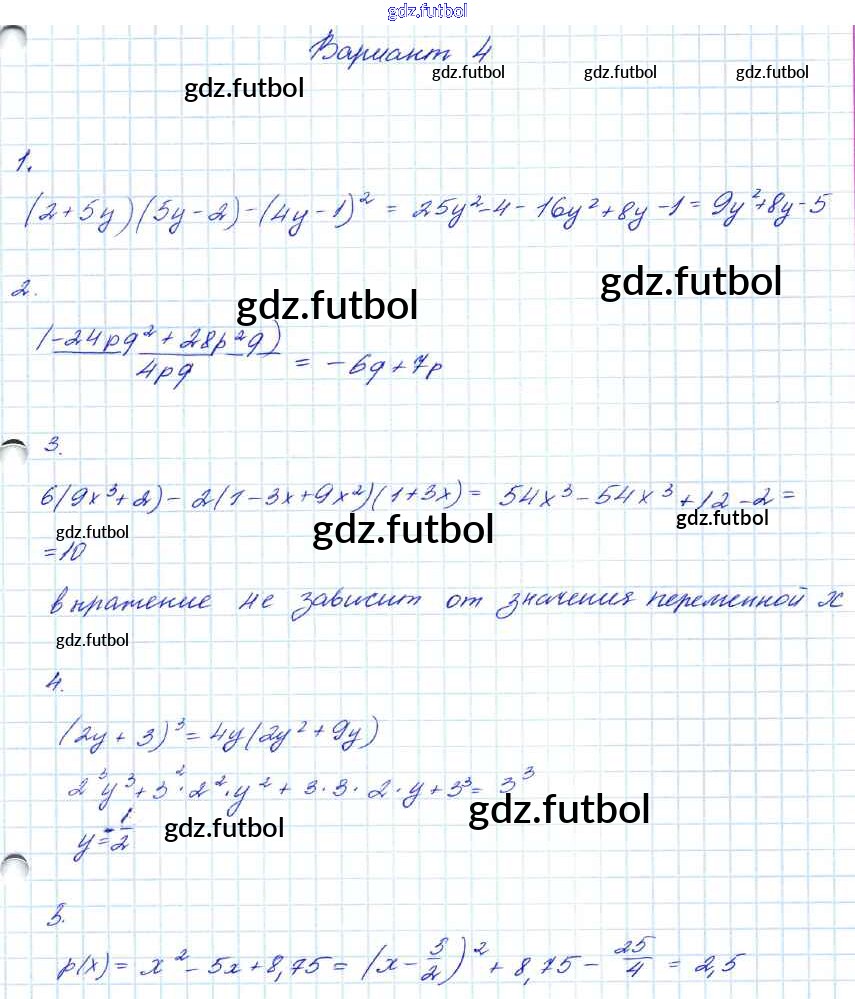 gdz.futbol
Вариант 4
gdz.futbol gdz.futbol gdz.futbol gdz.futbol
1.
(2+5y)(5y-2)-(4y-1)² = 25y²-4-16y²+8y-1=9y²+8y-5
2.
gdz.futbol gdz.futbol
(-24pq²+28p²q)
4pq = -6q+7p
3.
6(9x³+2)-2(1-3x+9x²)(1+3x)= 54x³-54x³+12-2=
gdz.futbol gdz.futbol gdz.futbol
=10
выражение не зависит от значения переменной x
gdz.futbol
4.
(2y+3)³=4y(2y²+9y)
2³y³+3²·2²·y²+3·3·2·y+3³=3³
gdz.futbol gdz.futbol
y=-1/2
5.
p(x)= x²-5x+8,75=(x-5/2)²+8,75-25/4=2,5